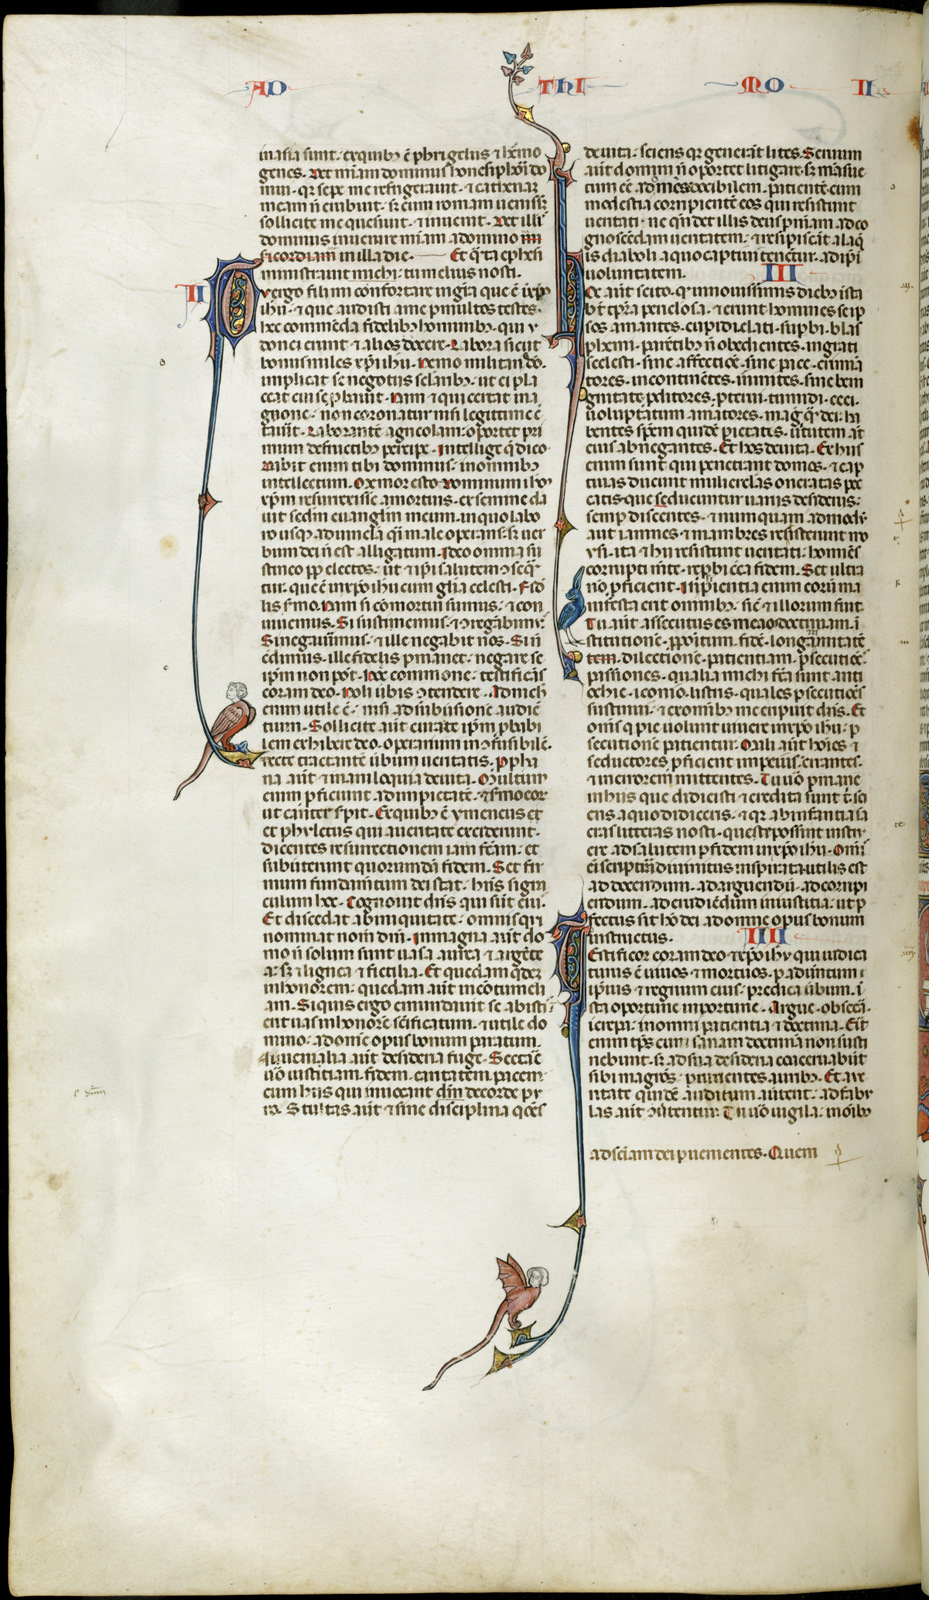 AD THI MO II
in asia sunt. ex quibꝫ ē phigelus ⁊ hermo
genes. Det miam dominus honesiphori do
mui. qr sepe me refrigerauit. ⁊ cathenam
meam n̄ erubuit. sꝫ cum romam uenisset
sollicite me quesiuit. ⁊ inuenit. Det illi
dominus inuenire miam a domino mi
sericordiam in illa die. Et qn̄ta ephesi
ministrauit michi: tu melius nosti.
II
Tu ergo fili mi confortare in gr̄a que ē in xp̄o
ihū. ⁊ que audisti a me p multos testes.
hec commēda fidelibꝫ hominibꝫ. qui y
donei erunt ⁊ alios docere. Labora sicut
bonus miles xp̄i ihū. Nemo militans deo.
implicat se negotiis sclaribꝫ. ut ei pla
ceat cui se pbauit. Nam ⁊ qui certat in a
gone. non coronatur nisi legittime c̄
tauit. Laborantē agricolam: oportet pri
mum de fructibꝫ percipe. Intellige q̄ dico.
Dabit enim tibi dominus. in omnibꝫ
intellectum. Memor esto dominum ihm
xp̄m resurrexisse a mortuis. ex semine da
uit scdm euanglm meum. in quo labo
ro usqꝫ ad uincla qi male operans. sꝫ uer
bum dei n̄ est alligatum. Ideo omnia su
stineo pp electos. ut ⁊ ipi salutem cōseqn̄
tur. que ē in xpo ihu cum glia celesti. Fide
lis s̄mo. Nam si cōmortui sumus. ⁊ con
uiuemus. Si sustinemus. ⁊ cōregnabimꝰ.
Si negauīmus. ⁊ ille negabit nos. Si n̄
credimus. ille fidelis pmanet. negare se
ipm non pōt. Hec commone. testificās
coram deo. Noli ūbis ↄtendere. Ad nich
enim utile ē. nisi ad subūsionē audiē
tium. Sollicite aūt cura te ipm pbabi
lem exhibere deo. operarium incōfusibilē.
recte tractantē ūbum ueritatis. Ppha
na aūt ⁊ inaniloquia deuita. Multum
enim pficiunt ad impietatē. ⁊ s̄mo eor
ut cancer s̄pit. Ex quibꝫ ē ymeneus et
et phyletus qui a ueritate exciderunt.
dicentes resurrectionem iam factam. et
subuterunt quorumdā fidem. Set fir
mum fundamtum dei stat. habens signa
culum hec. Cognouit dns qui sūt eiꝰ.
Et discedat ab iniquitate. omnis qui
nominat nomen dni. In magna aūt do
mo n̄ solum sunt uasa aurea ⁊ argēte
a: sꝫ ⁊ lignea ⁊ fictilia. Et quedam qdez
in honorem: quedam aūt in cōtumeli
am. Si quis ergo emundauit se ab isti:
erit uas in honorē sc̄ificatum. ⁊ utile do
mino: ad omne opus bonum paratum.
Iuuenilia aūt desideria fuge. Sectare
uō iustitiam. fidem. caritatem. pacem.
cum hiis qui inuocant dnm de corde pu
ro. Stultas aūt ⁊ sine disciplina qōes
deuita: sciens qꝛ generāt lites. Seruum
aūt domini n̄ oportet litigare. sꝫ mansue
tum eē ad om̄es. docibilem. patientē. cum
modestia corripientē eos qui resistunt
ueritati. ne qn̄ det illis deus pniam ad co
gnoscēdam ueritatem. ⁊ resipiscāt a laq̄
is diaboli a quo captiui tenētur. ad ipsius
uoluntatem. III
Hoc aūt scito. qꝛ in nouissimis diebꝫ ista
bt tpra piculosa. ⁊ erunt homines se ip
sos amantes. cupidi. elati. supbi. blas
phemi. parētibꝫ n̄ obedientes. ingrati
scelesti. sine affectiōe. sine pace. crimīa
tores. incontinētes. inmites. sine beni
gnitate. pditores. pterui. tumidi. ceci.
uoluptatum amatores. magꝭ q̄ dei: ha
bentes spēm quidē pietatis. ūtutem aūt
eius abnegantes. Et hos deuita. Ex hiis
enim sunt qui penetrant domos. ⁊ cap
tiuas ducunt mulierculas oneratas pec
catis. que seducuntur uariis desideriis:
semp discentes. ⁊ numquam ad m̄odū
aūt iamnes ⁊ mambres restiterunt mo
ysi. ita ⁊ hii resistunt ueritati: homies
corrupti mēte. reprobi circa fidem. Set ultra
nō pficient. Insipientia enim eorū ma
nifesta erit omnibꝫ. sic̄ ⁊ illorum fuit.
Tu aūt assecutus es meam doctrinam. ī
stitutionē. ppositum. fidē. longanimitatē
tem. dilectionē. patientiam. psecutiōes.
passiones. qualia michi fc̄a sunt anti
ochie. iconio. listris. quales psecutiōes
sustinui. ⁊ ex omnibꝫ me eripuit dns. Et
omēs qui pie uolunt uiuere in xpo ihu: p
secutionē patientur. Mali aūt hoies ⁊
seductores pficient in peius. errantes.
⁊ in errorem mittentes. Tu uō pmane
in hiis que didicisti ⁊ credita sunt tꝉ. sci
ens a quo didiceris. ⁊ qꝛ ab infantia sa
cras litteras nosti. que te possunt instru
ere ad salutem. p fidem in xpo ihu. Omīs
eī scriptura diuinitus inspirata. utilis est
ad docendum. ad arguendū. ad corripi
endum. ad erudiēdum in iustitia: ut p
fectus sit hō dei. ad omne opus bonum
instructus. IIII
Testificor coram deo ⁊ xpo ihu. qui iudica
turus ē uiuos ⁊ mortuos. p aduentum i
ipsius ⁊ regnum eius. predica ūbum. ī
sta oportune. inportune. Argue. obsecra.
increpa. in omni patientia ⁊ doctrina. Erit
enim tp̄s cum sanam doctrinā non susti
nebunt. sꝫ ad sua desideria coaceruabūt
sibi magrōs: prurientes auribꝫ. Et a ue
ritate quidē auditum auūtent: ad fabu
las aūt ↄūtentur. Tu uō uigila: in omībꝫ
ad sciam dei puenientes. Quem